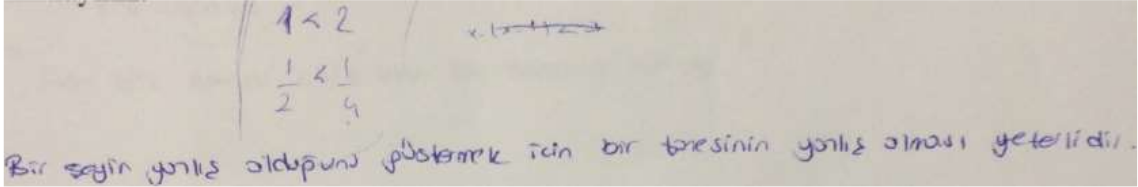 1 < 2
1/2 < 1/4
Bir şeyin yanlış olduğunu göstermek için bir tanesinin yanlış olması yeterlidir.